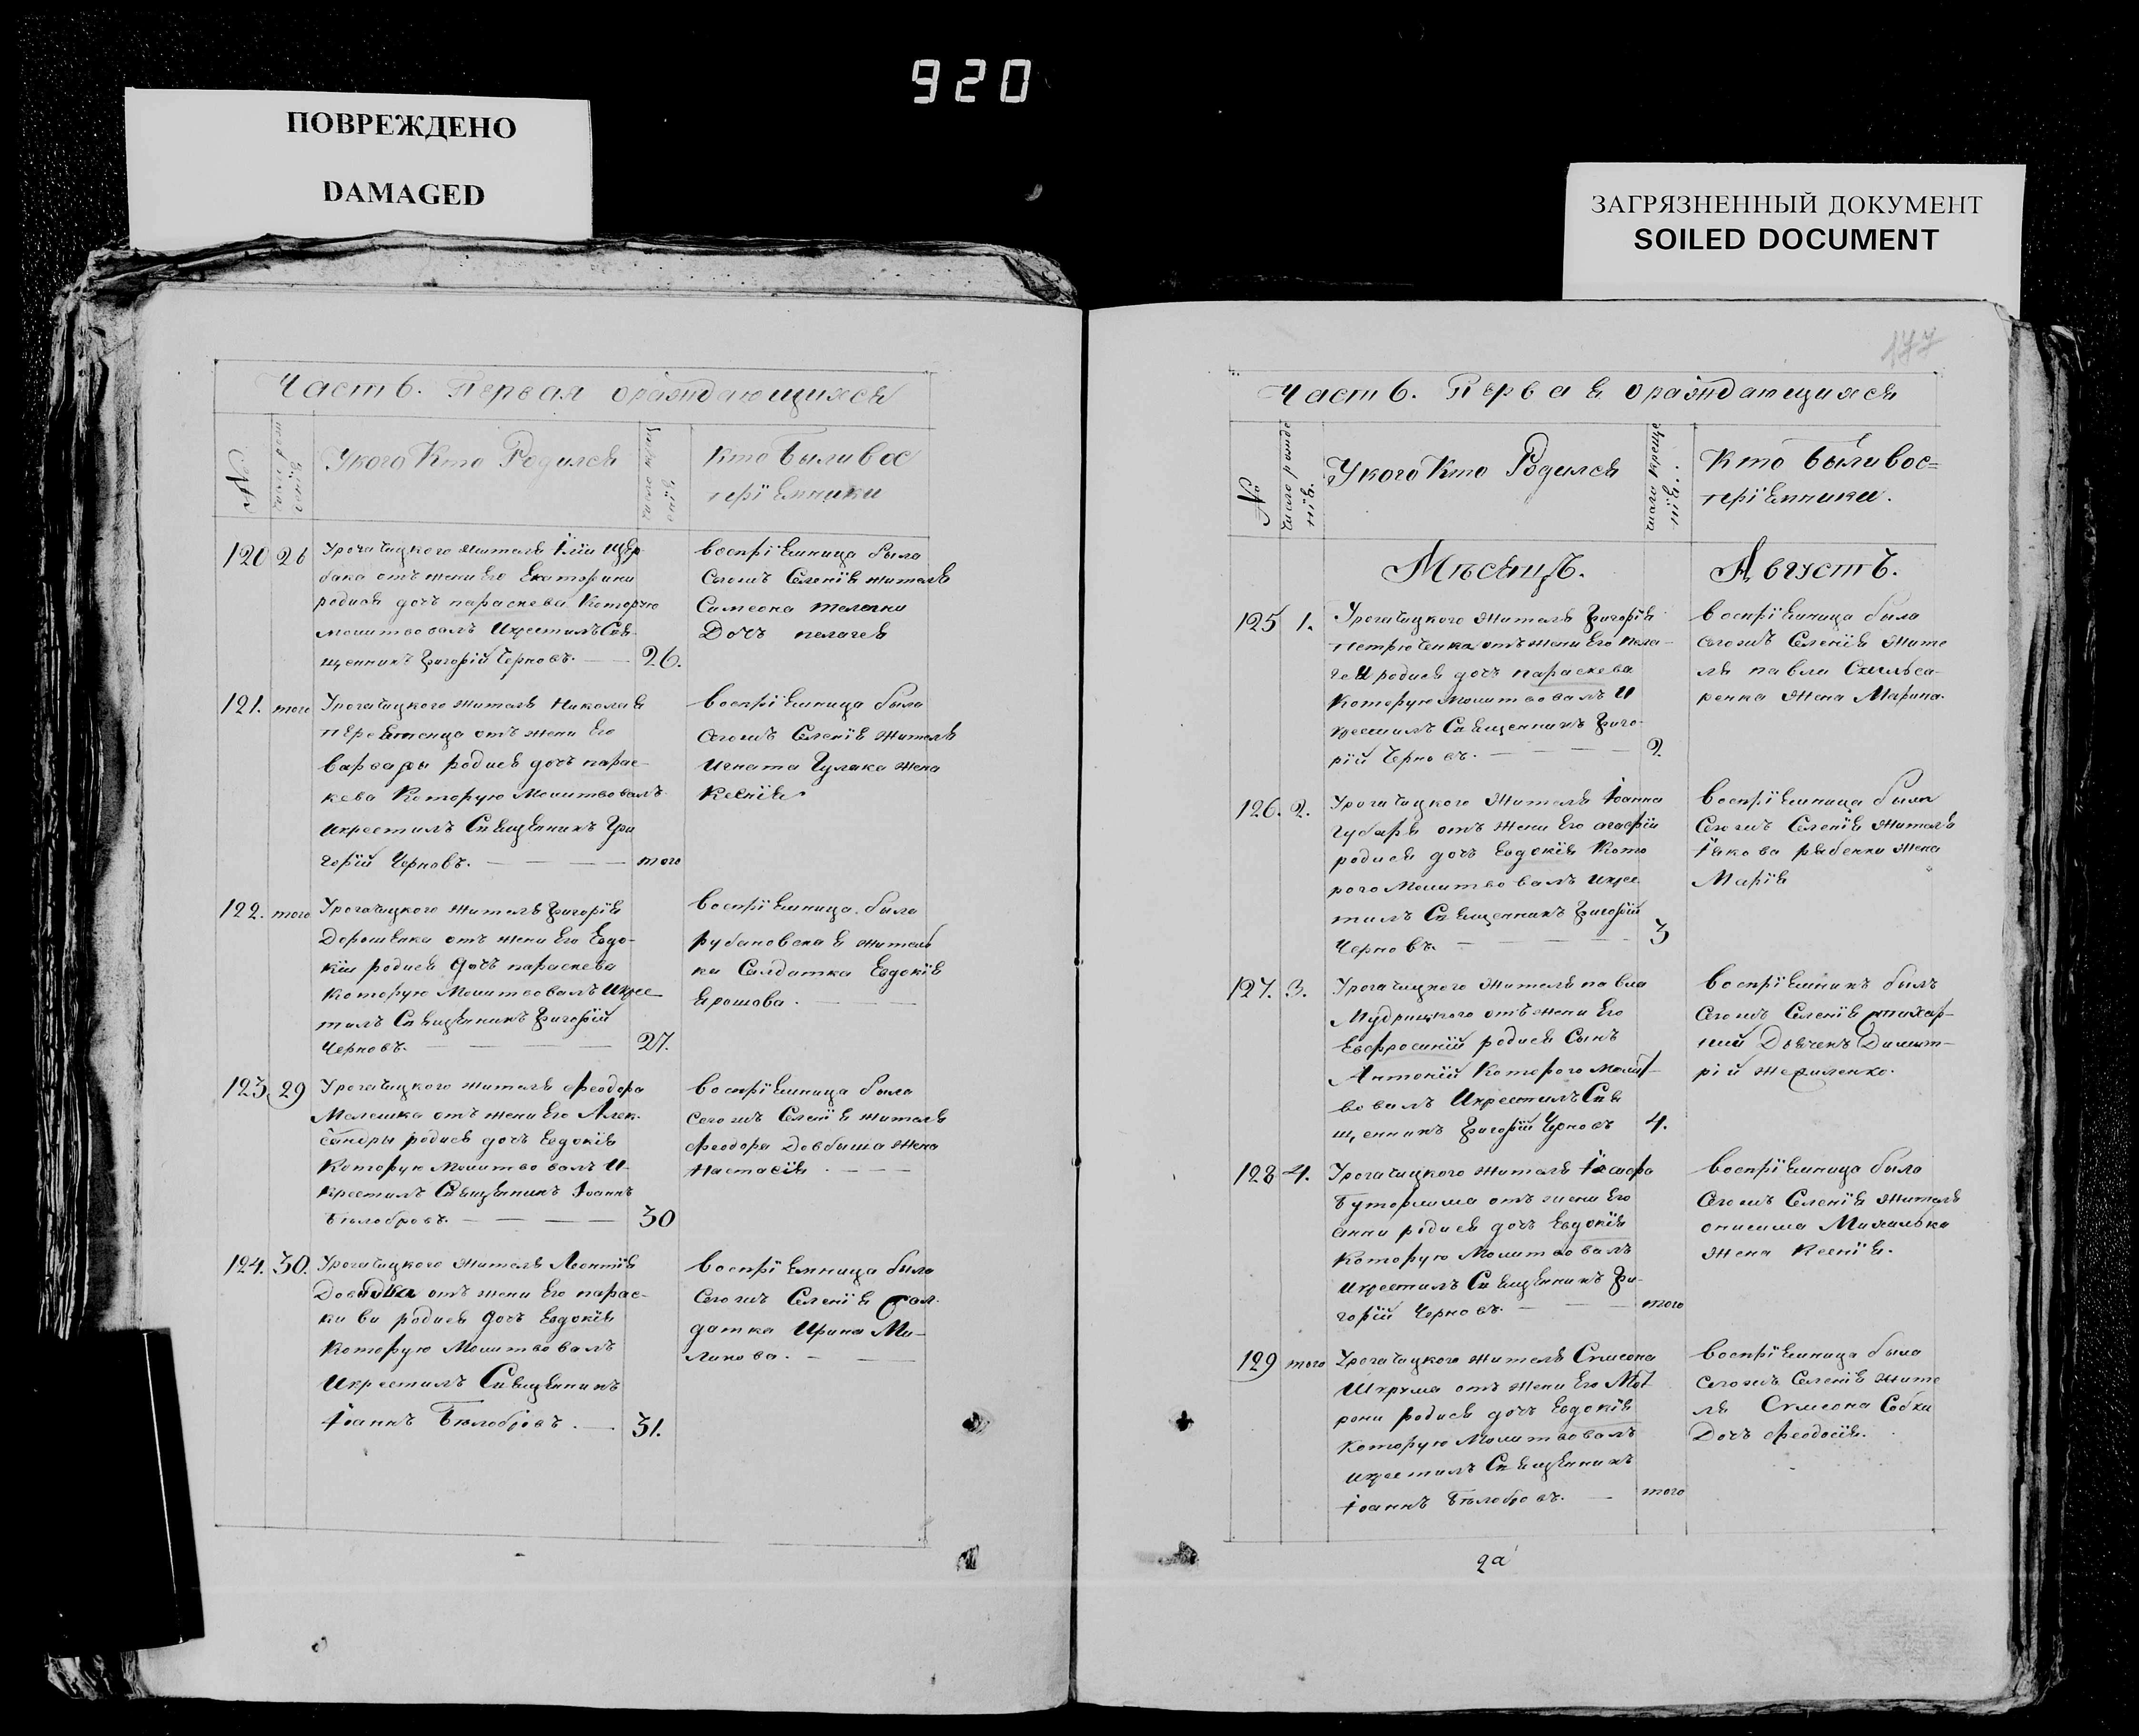 920
ПОВРЕЖДЕНО
DAMAGED
ЗАГРЯЗНЕННЫЙ ДОКУМЕНТ
SOILED DOCUMENT
Часть. Первая ораждающихся
№
Укого Кто Родился
Кто были вос
прiемники
120 26 Урогачицкого жителя Iлiи Щер
бака отъ жени Его Екатерини
родися дочъ параскева Которую
молитвовалъ Икрестилъ Свя
щенникъ Григорiй Черновъ. 26.
воспрiемница была
Тогожъ Селенiя жителя
Симеона
Дочъ пелагея
121. того Урогачицкого жителя Николая
отъ жени Его
варвары родися дочъ парас-
кева Которую Молитвовалъ
Икрестилъ Священникъ Гри
горiй Черновъ. того
воспрiемница была
Тогожъ Селенiя жителя
Игната Гулака жена
Ксенiя
122. того Урогачицкого жителя Григорiя
Дорошенка отъ жени Его Евдо-
кiи родися дочъ параскева
Которую Молитвовалъ Икрес
тилъ Священникъ Григорiй
Черновъ. 27.
воспрiемница была
рубановская жител
ка Салдатка Евдокiя
Ярошова.
123. 29 Урогачицкого жителя Феодора
Мелешка отъ жени Его Алек-
сандры родися дочъ Евдокiя
Которую Молитвовалъ И
Крестилъ Священникъ Iоаннъ
Белобровъ. 30
воспрiемница была
Тогожъ Селенiя жителя
Феодора Довбыша жена
Настасiя.
124. 30. Урогачицкого жителя Леонтiя
отъ жени Его парас-
киви родися дочъ Евдокiя
Которую Молитвовалъ
Икрестилъ Священникъ
Iоаннъ Белобровъ. 31.
воспрiемница была
Тогожъ Селенiя Сол-
датка Ирина Ми-
ликова.
177
Часть. Первая ораждающихся
№
число рожде
нiя.
Укого Кто Родился
число креще
нiя.
Кто были вос=
прiемники.
Мѣсяцъ. Августъ.
125 1. Урогачицкого Жителя Григорiя
петрюченка отъ жени Его пела-
геи родися дочъ параскева
Которую Молитвовалъ И
крестилъ Священникъ Григо-
рiй Черновъ. 2
воспрiемница была
тогожъ Селенiя Жите
ля павла
ренка Жена Марина.
126. 2. Урогачицкого Жителя Iоанна
Губаря отъ Жени Его агафiи
родися дочъ Евдокiя Кото
рого Молитвовалъ Икрес
тилъ Священникъ Григорiй
Черновъ. 3
воспрiемница была
Тогожъ Селенiя Жителя
Iякова рябенки Жена
Марiя
127. 3. Урогачицкого Жителя павла
Мудрицкого отъ Жени Его
Евфросинiи родися Сынъ
Антонiй Которого Молит-
вовалъ Икрестилъ Свя
щенникъ Григорiй Черновъ 4.
воспрiемникъ былъ
Тогожъ Селенiя стихар-
ний Дьяченъ Димит-
рiй
128 4. Урогачицкого Жителя
отъ жени Его
анни родися дочъ Евдокiя
Которую Молитвовалъ
Икрестилъ Священникъ Гри-
горiй Черновъ. того
воспрiемница была
Тогожъ Селенiя Жителя
онисима Михалька
Жена Ксенiя.
129 того Урогачицкого жителя Симеона
Шкрума отъ Жени Его Мот
рони родися дочъ Евдокiя
Которую Молитвовалъ
Икрестилъ Священникъ
Iоаннъ Белобровъ. того
воспрiемница была
Тогожъ Селенiя Жите
ля Симеона Собки
Дочъ Феодосiя.